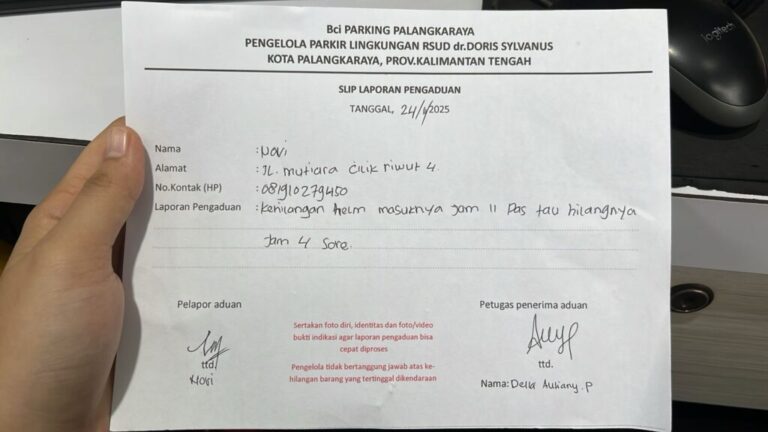 Bci PARKING PALANGKARAYA
PENGELOLA PARKIR LINGKUNGAN RSUD dr.DORIS SYLVANUS
KOTA PALANGKARAYA, PROV.KALIMANTAN TENGAH
SLIP LAPORAN PENGADUAN
TANGGAL, 24/ /2025
Nama : Novi
Alamat : JL. mutiara cilik riwut 4.
No.Kontak (HP) : 081910279450
Laporan Pengaduan : kehilangan helm masuknya Jam 11 Pas tau hilangnya
Jam 4 Sore.
Pelapor aduan
ttd.
Novi
Sertakan foto diri, identitas dan foto/video
bukti indikasi agar laporan pengaduan bisa
cepat diproses
Pengelola tidak bertanggung jawab atas ke-
hilangan barang yang tertinggal dikendaraan
Petugas penerima aduan
ttd.
Nama: Della Auliany. P
logitech